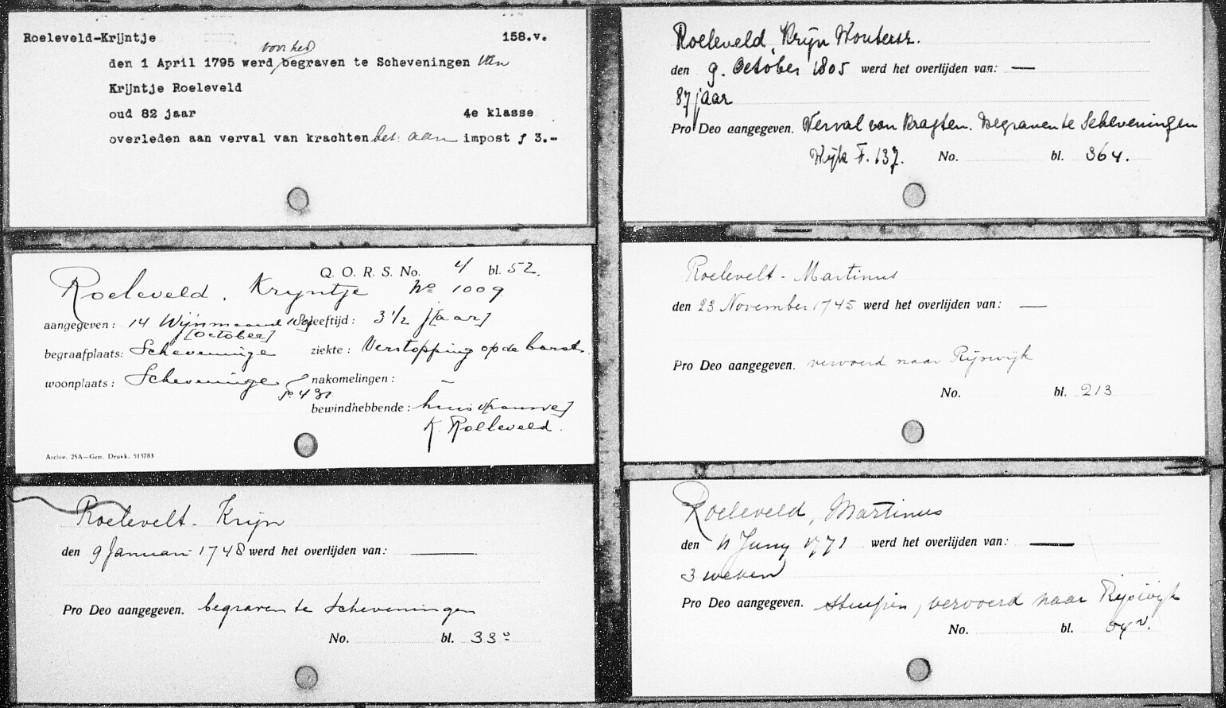 Roeleveld-Krijntje 158.v.
voor het
den 1 April 1795 werd begraven te Scheveningen van
Krijntje Roeleveld
oud 82 jaar 4e klasse
overleden aan verval van krachten het aan impost ƒ 3.-
Q. O. R. S. No. 4 bl. 52.
Roeleveld, Kryntje No 1009
aangegeven: 14 Wijnmaand leeftijd: 3½ j[aar]
[October]
begraafplaats: Scheveninge ziekte: Verstopping op de borst
woonplaats: Scheveninge nakomelingen: —
bewindhebbende: huisv[rouwe]
K. Roeleveld.
Archw. 25A—Gem. Drukk. 513783
Roelevelt - Krijn
den 9 Januari 1748 werd het overlijden van: —
Pro Deo aangegeven. begraven te Scheveningen
No. bl. 33
Roeleveld, Krijn Woutersz.
den 9. October 1805 werd het overlijden van: —
87 jaar
Pro Deo aangegeven. Verval van Kragten. Begraven te Scheveningen
Wijk F. 137. No. bl. 364.
Roelevelt - Martinus
den 23 November 1745 werd het overlijden van: —
Pro Deo aangegeven. vervoerd naar Rijswijk
No. bl. 213
Roeleveld, Martinus
den 11 Juny 1771 werd het overlijden van: —
3 weken
Pro Deo aangegeven. Stuipen, vervoerd naar Rijswijk
No. bl. v.